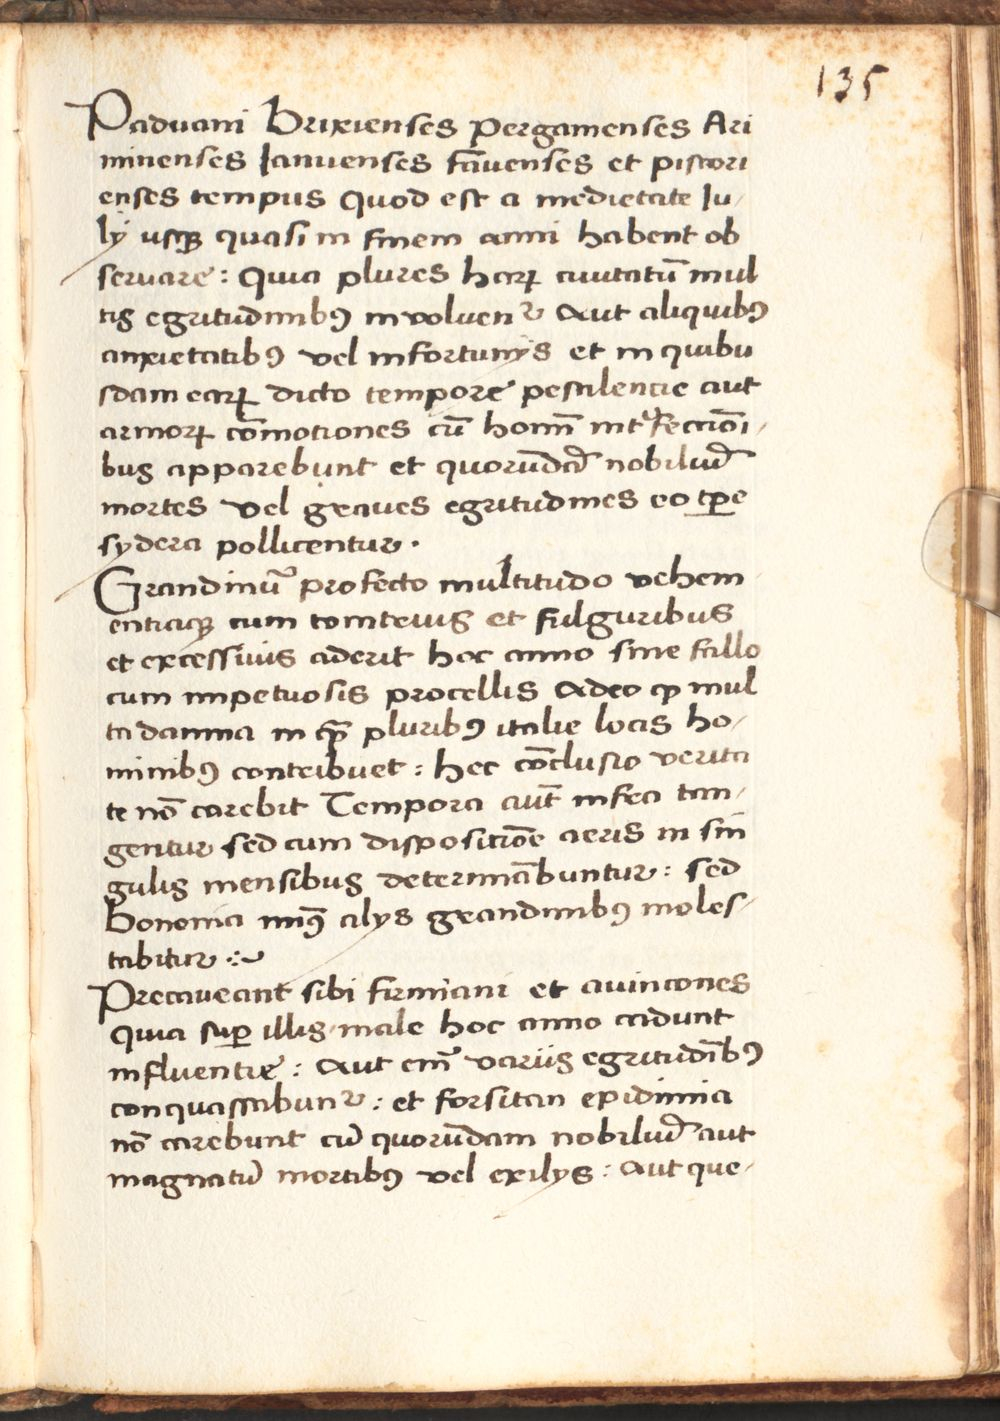 135
Paduani Brixienses pergamenses Ari
minenses Ianuenses fāuenses et pistori
enses tempus quod est a medietate Iu-
lÿ usqꝫ quasi in finem anni habent ob
seruare: Quia plures harꝝ ciuitatū mul
tis egritudinibꝰ inuoluenᷣ Aut aliquibꝰ
anxietatibꝰ vel infortunÿs et in quibu
sdam earꝝ dicto tempore pestilentie aut
armorꝝ cōmotiones cū homīn interfectiōi-
bus apparebunt et quorūdā nobiliū
mortes vel graues egritudines eo tꝑe
sydera pollicentur.
Grandinū profecto multitudo vehem
entiaqꝫ cum tonitruis et fulguribus
et excessiuis aderit hoc anno sine fallo
cum impetuosis procellis Adeo ꝙ mul
ta damna in pluribꝰ italie locis ho-
minibꝰ contribuet: hec cōclusio verita
te nō carebit Tempora aūt infra tan-
gentur sed cum dispositiōe aeris in sin
gulis mensibus determinabuntur: sed
Bononia minꝰ alÿs grandinibꝰ moles-
tabitur
Precaueant sibi firmiani et auincones
quia suꝑ illis male hoc anno cadunt
influentie: Aut enī variis egritudībꝰ
conquassabunᷣ: et forsitan epidimia
nō carebunt cū quorūdam nobiliū aut
magnatū mortibꝰ vel exilÿs: Aut que-